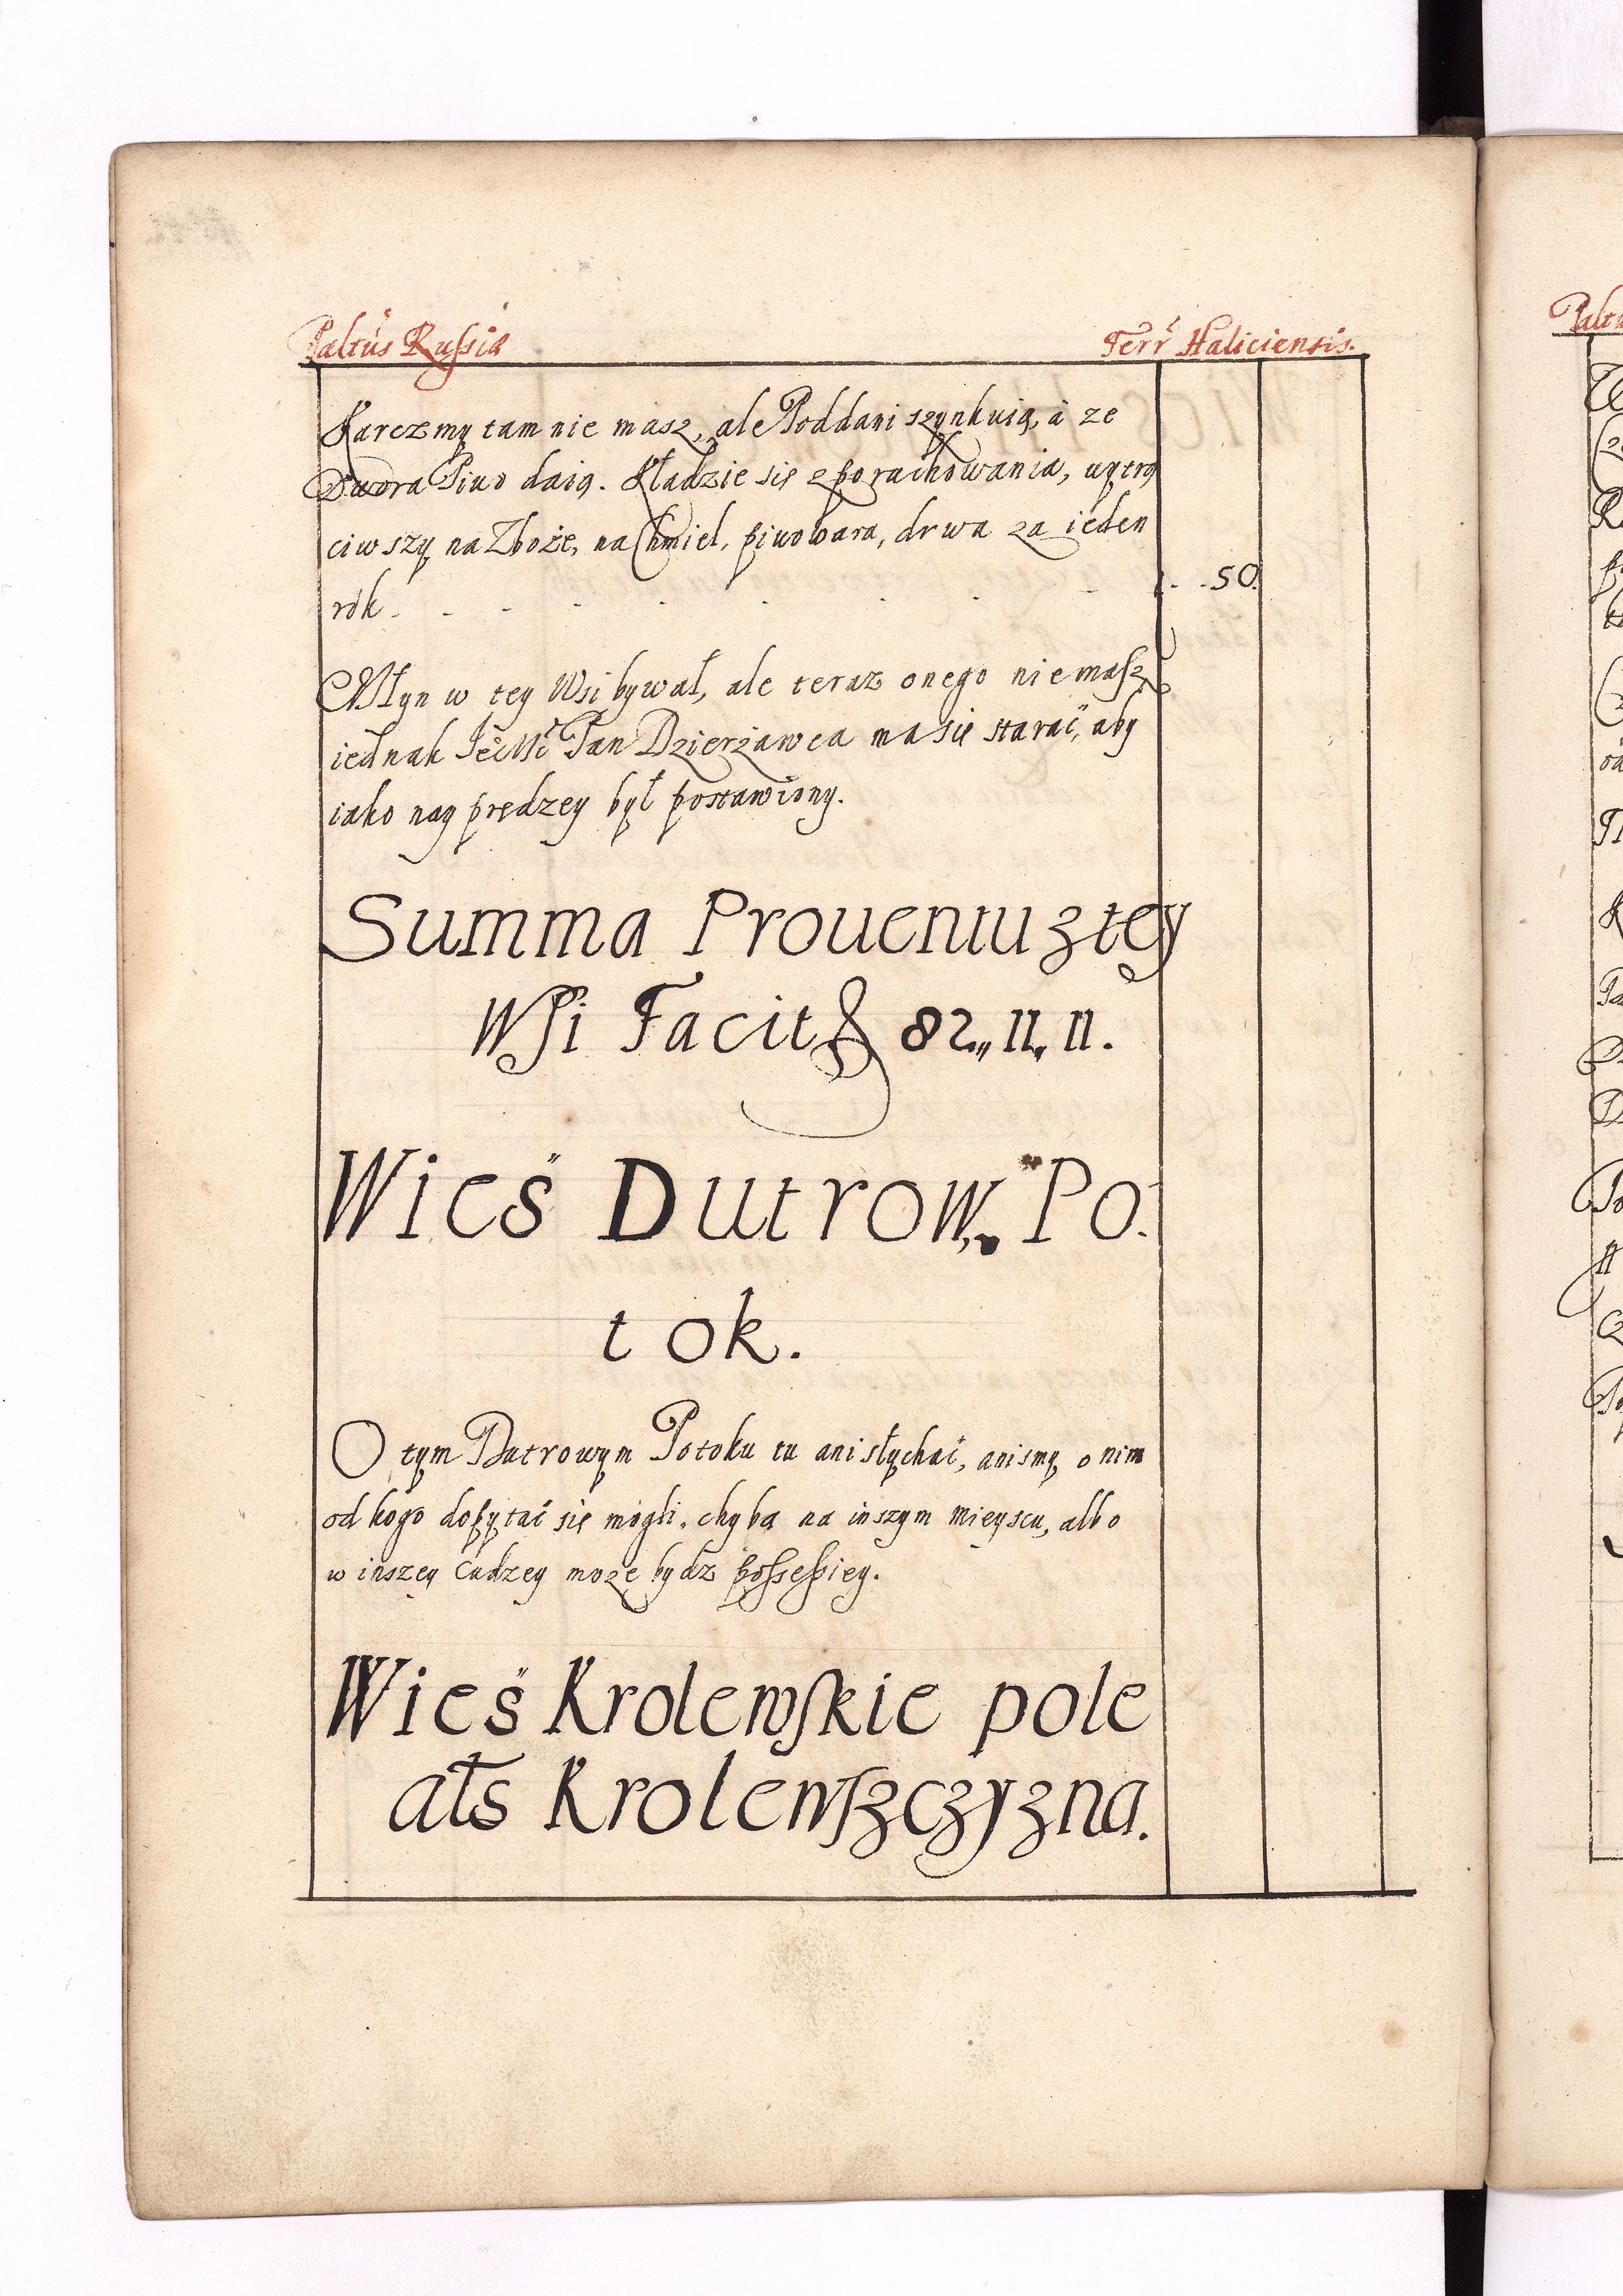 Paltus Russiæ Terr Haliciensis.
Karczmy tam nie masz, ale Poddani szynkuią, à ze
Dwora Piwo daią. Kładzie się z porachowania, wytrą
ciwszy na Zboże, na Chmiel, piwowara, drwa za ieden
rok - - - - - - - - - 50.
Młyn w tey Wsi bywał, ale teraz onego niemasz,
iednak JeoMć Pan Dzierżawca ma się starać, aby
iako nay prędzey był postawiony.
Summa Prouentu z tey
Wsi Facit 82,, 11,, 11.
Wieś Dutrow,, Po:
tok.
O tym Dutrowym Potoku tu ani słychać, anismy o nim
od kogo dopytać się mogli. chyba na inszym mieyscu, albo
w inszey cudzey może bydź possessiey.
Wieś Krolewskie pole
als Krolewszczyzna.